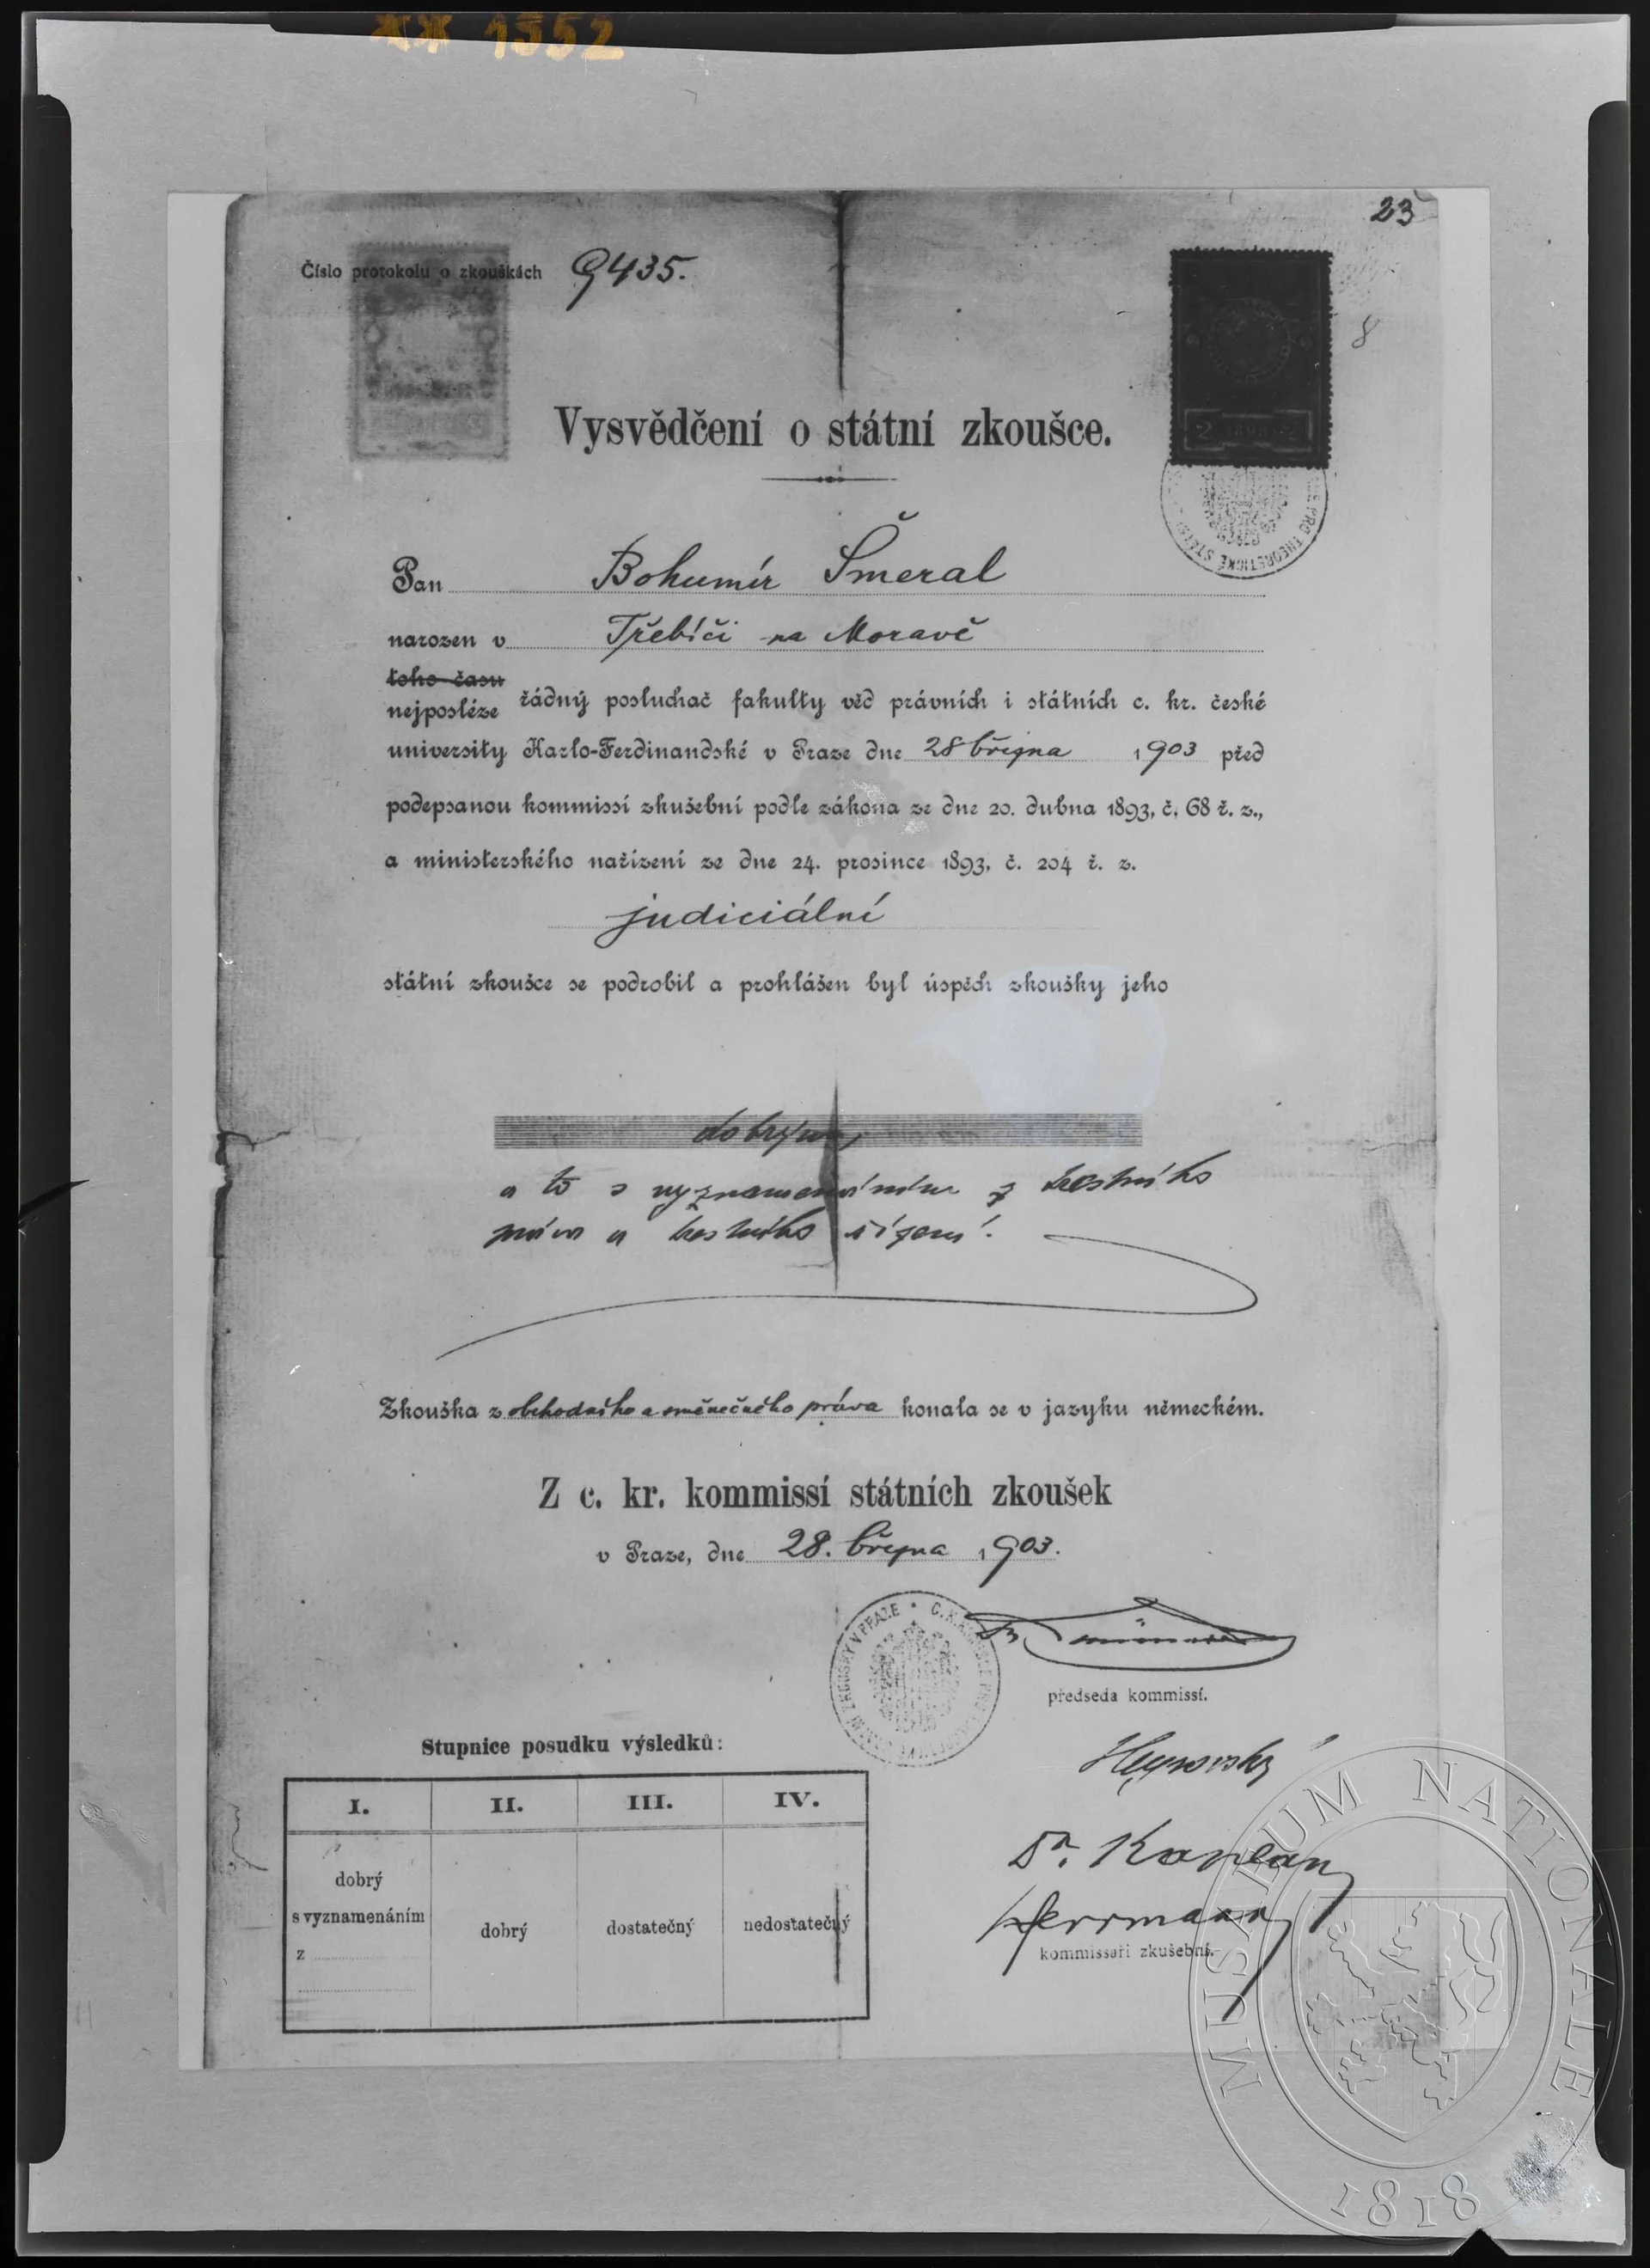 ** 1352
23
Číslo protokolu o zkouškách 9435.
8
2 1898 2
Vysvědčení o státní zkoušce.
PRO THEORETICKÉ STÁTNÍ
Pan Bohumír Šmeral
narozen v Třebíči na Moravě
toho času
nejposléze řádný posluchač fakulty věd právních i státních c. kr. české
university Karlo-Ferdinandské v Praze dne 28 března 1903 před
podepsanou kommissí zkušební podle zákona ze dne 20. dubna 1893, č. 68 ř. z.,
a ministerského nařízení ze dne 24. prosince 1893, č. 204 ř. z.
judiciální
státní zkoušce se podrobil a prohlášen byl úspěch zkoušky jeho
dobrým,
a to s vyznamenáním z trestního
práva a trestního řízení.
Zkouška z obchodního a směnečného práva konala se v jazyku německém.
Z c. kr. kommissí státních zkoušek
v Praze, dne 28. března 1903.
ZKOUŠKY V PRAZE * C. K.
předseda kommissí.
Heyrovský
Stupnice posudku výsledků:
I. II. III. IV.
Dr. Kaplan
dobrý
s vyznamenáním
z
dobrý dostatečný nedostatečný
Herrmann
kommissaři zkušební.
MUSAEUM NATIONALE
1818